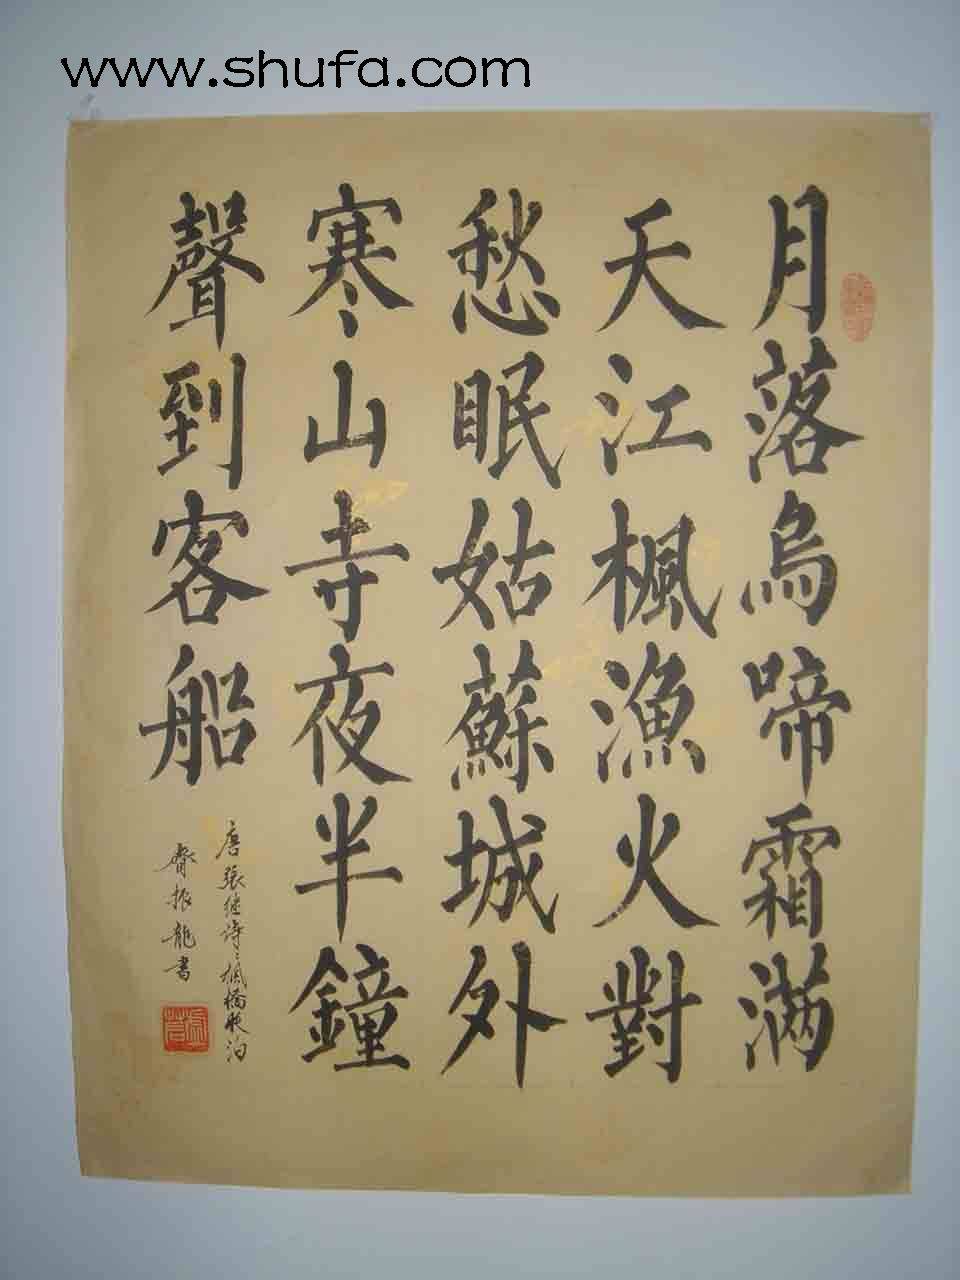 www.shufa.com
月落烏啼霜滿
天江楓漁火對
愁眠姑蘇城外
寒山寺夜半鐘
聲到客船
唐張继詩楓橋夜泊
振龍書